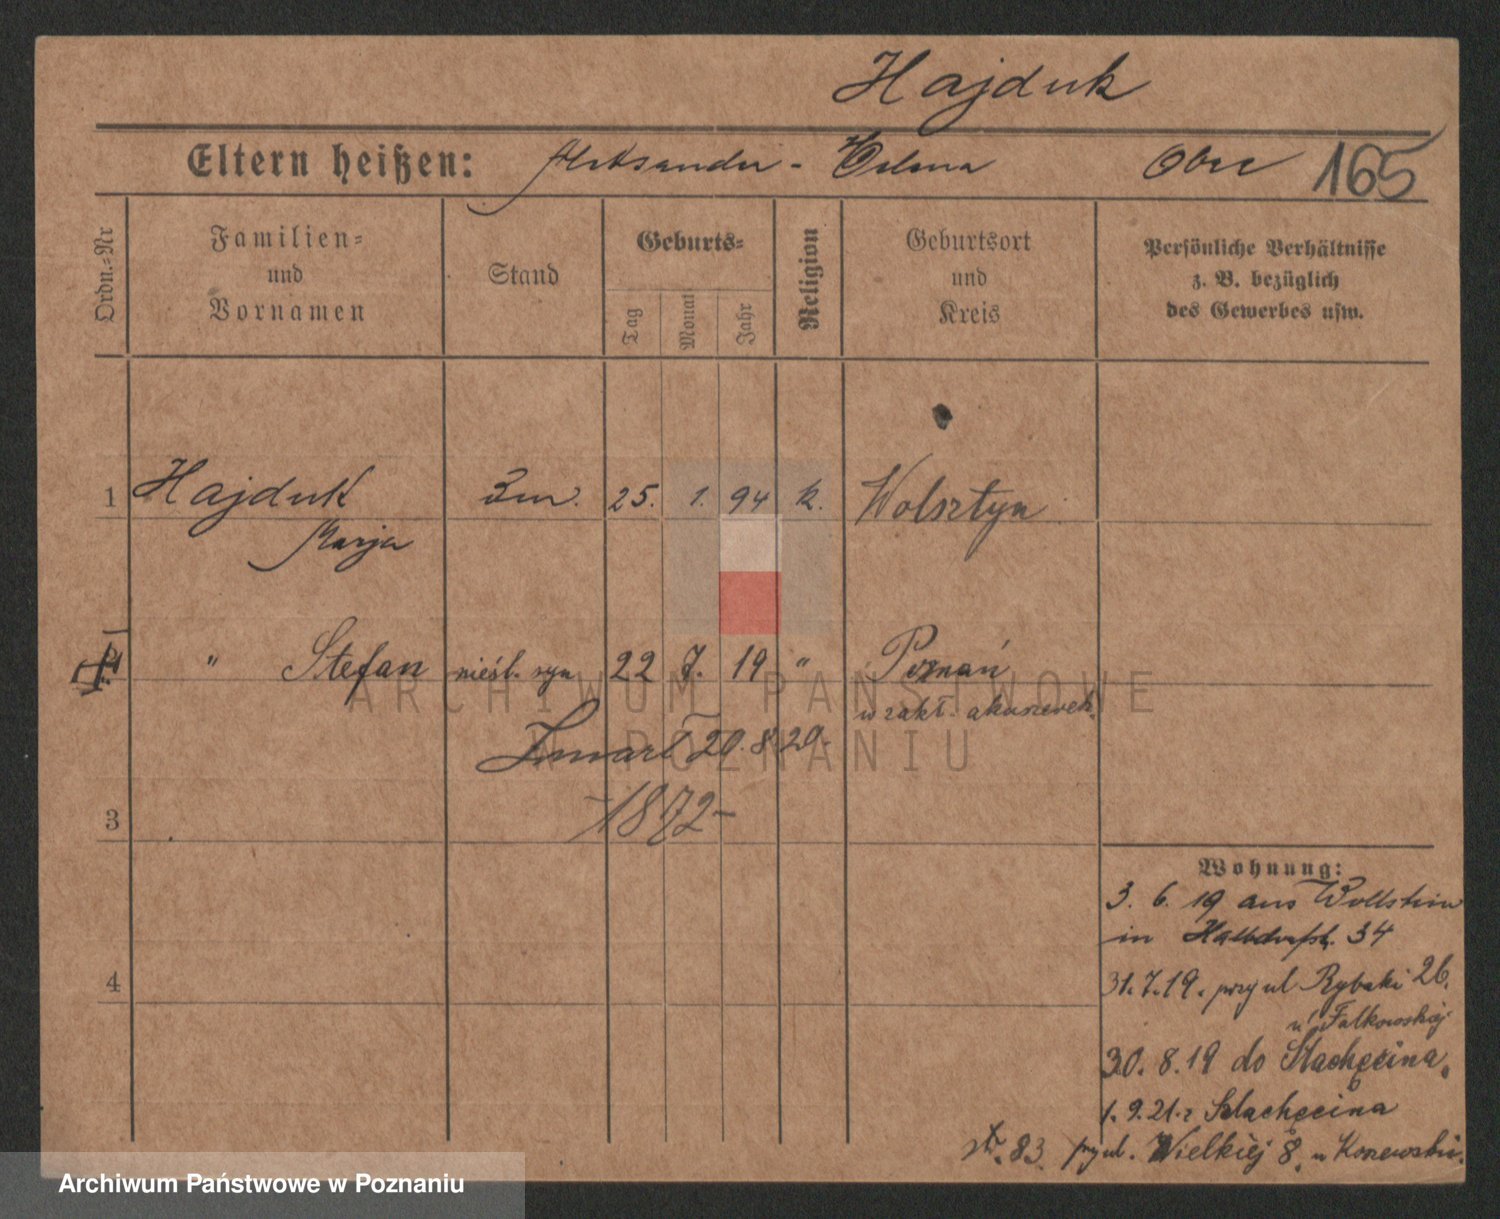 Hajduk
Eltern heißen: Aleksander - Helena Obre 165
Ordn.-Nr
Familien- und Vornamen
Stand
Geburts-
Tag Monat Jahr
Religion
Geburtsort und Kreis
Persönliche Verhältnisse
z. B. bezüglich
des Gewerbes usw.
1 Hajduk 25. 1. 94 k. Wolsztyn
Marja
2 " Stefan nieśl. syn 22 7. 19 " Poznań
w zakł. akuszerek.
Zmarł 20. 8. 20.
-1872-
3
4
Wohnung:
3. 6. 19 aus Wollstein
in Halbdorfstr. 34
31. 7. 19. przy ul Rybaki 26.
u Falkowskiej
30. 8. 19 do Szlachęcina.
1. 9. 21. z Szlachęcina
str. 83. przy ul. Wielkiej 8. u Koszewski.
ARCHIWUM PAŃSTWOWE
W POZNANIU
Archiwum Państwowe w Poznaniu